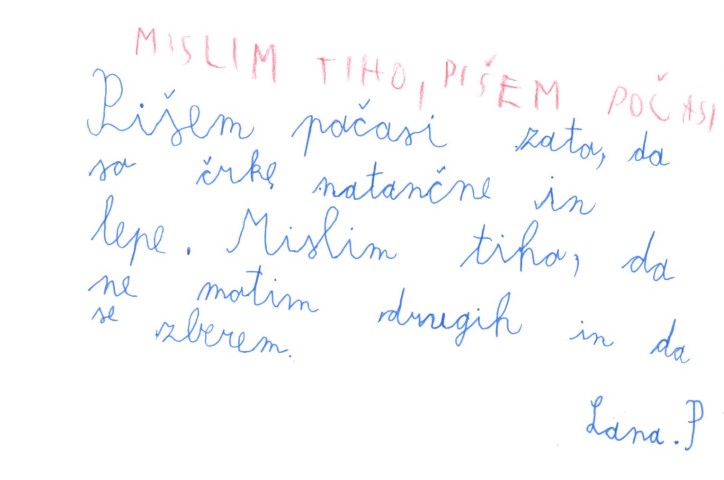 MISLIM TIHO, PIŠEM POČASI
Pišem počasi zato, da
so črke natančne in
lepe. Mislim tiho, da
ne motim drugih in da
se zberem.
Lana. P